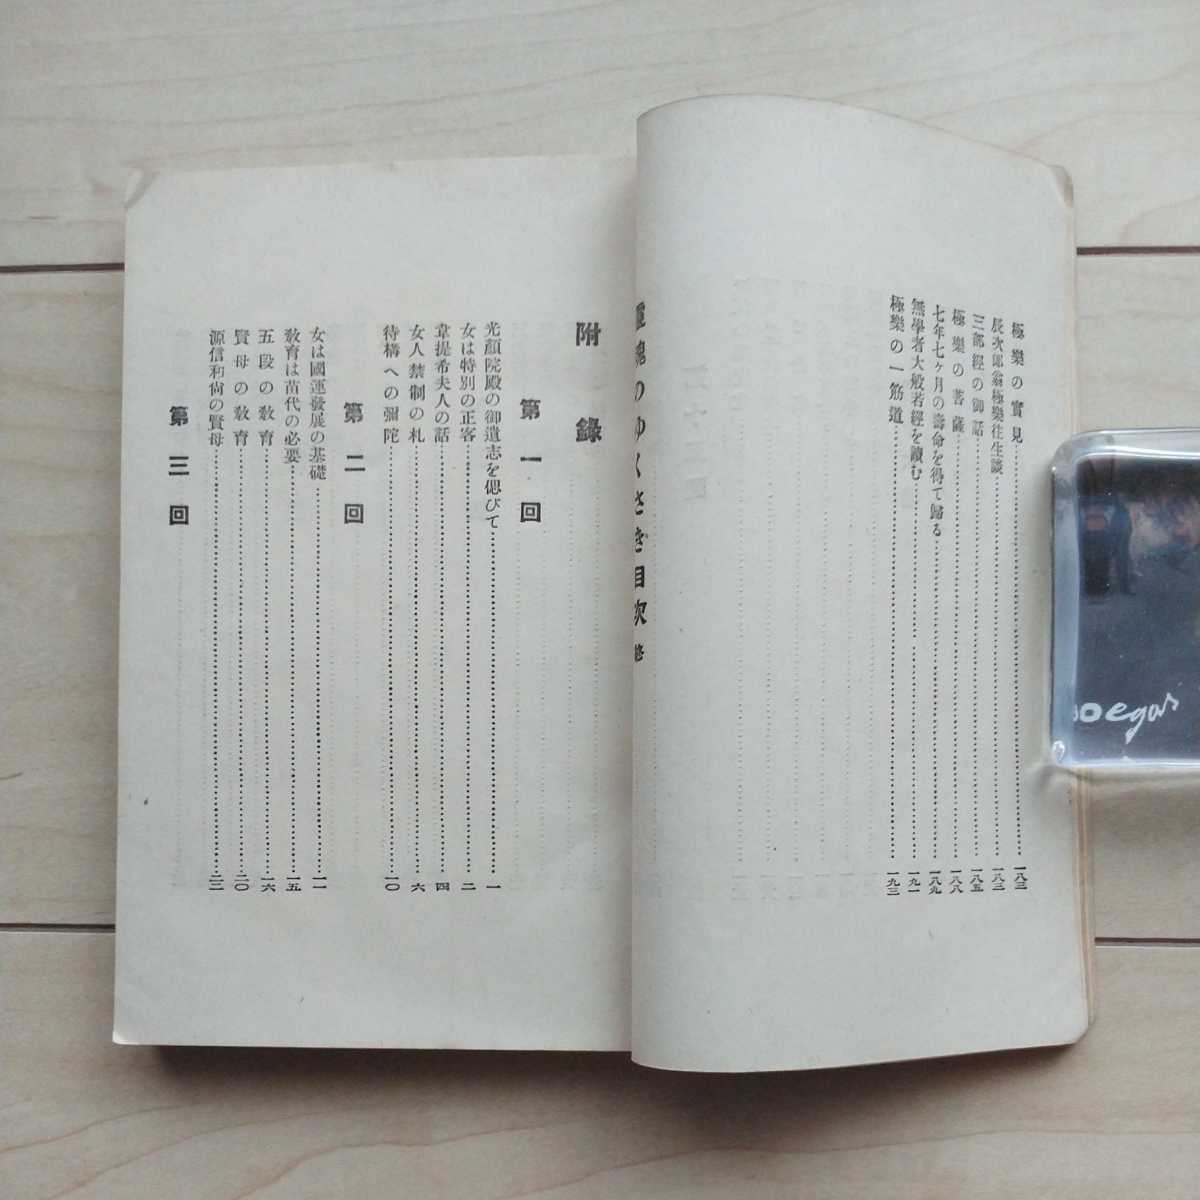 極樂の實見……一八三
辰次郎翁極樂往生談……一八三
三部經の御話……一八五
極樂の菩薩……一八八
七年七ヶ月の壽命を得て歸る……一八九
無學者大般若經を讀む……一九一
極樂の一筋道……一九三
靈魂のゆくさき目次 終
附錄
第一回
光顏院殿の御遺志を偲びて……一
女は特別の正客……二
韋提希夫人の話……四
女人禁制の札……六
待構への彌陀……一〇
第二回
女は國運發展の基礎……一一
敎育は苗代の必要……一五
五段の敎育……一六
賢母の敎育……二〇
源信和尙の賢母……二二
第三回